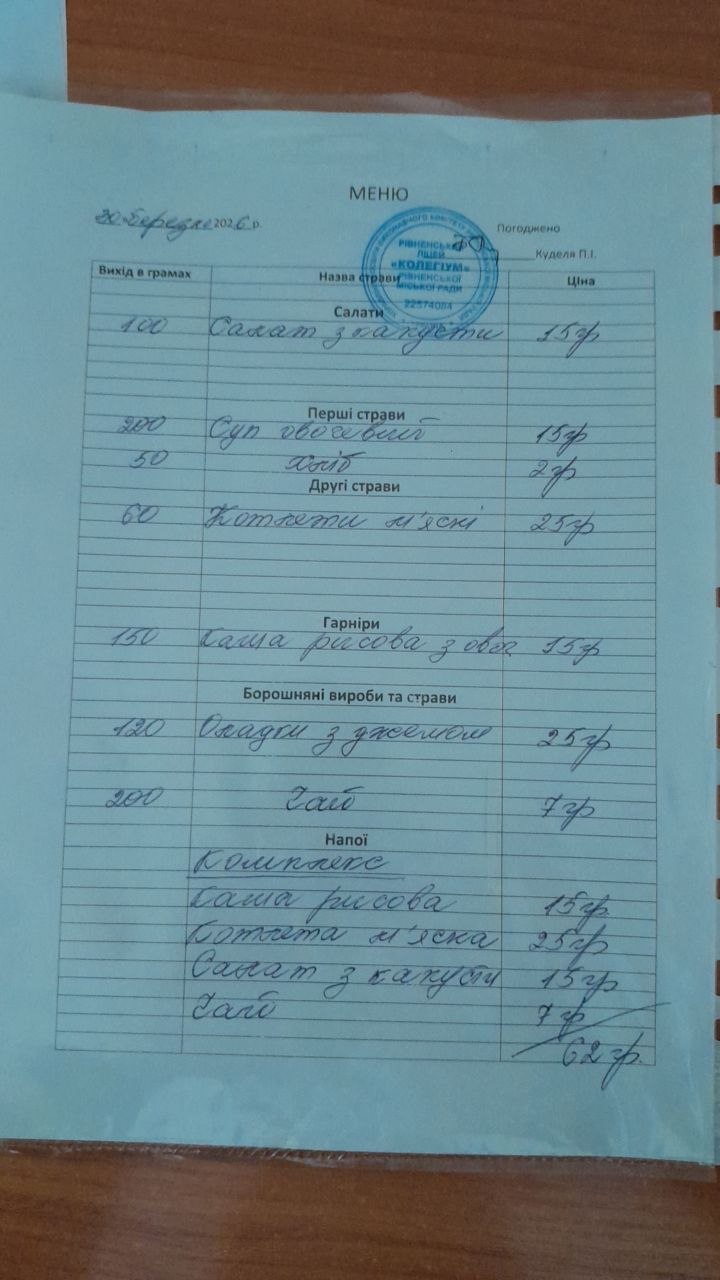 МЕНЮ
30 березня 2026 р.
Погоджено
Куделя П.І.
РІВНЕНСЬКИЙ
ЛІЦЕЙ
«КОЛЕГІУМ»
РІВНЕНСЬКОЇ
МІСЬКОЇ РАДИ
22574084
Вихід в грамах Назва страви Ціна
Салати
100 Салат з капусти 15гр
Перші страви
200 Суп овочевий 15гр
50 хліб 2гр
Другі страви
60 Котлети м'ясні 25гр
Гарніри
150 Каша рисова з овоч 15гр
Борошняні вироби та страви
120 Оладки з джемом 25гр
200 Чай 7гр
Напої
Комплекс
Каша рисова 15гр
Котлета м'ясна 25гр
Салат з капусти 15гр
Чай 7гр
62гр.